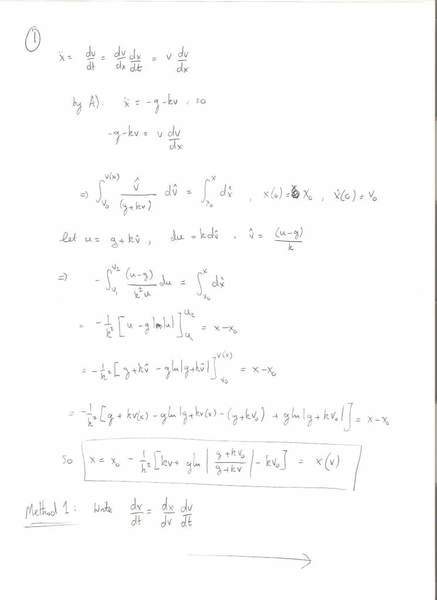 ①
ẍ = dv/dt = dv/dx dx/dt = v dv/dx
by A). ẍ = -g-kv, so
-g-kv = v dv/dx
⇒ ∫_{v₀}^{v(x)} v̂/(g+kv̂) dv̂ = ∫_{x₀}^{x} dx̂, x(0)=x₀, ẋ(0)=v₀
let u = g+kv̂, du = kdv̂. v̂ = (u-g)/k
⇒) -∫_{u₁}^{u₂} (u-g)/k²u du = ∫_{x₀}^{x} dx̂
= -1/k² [u - gln|u|]_{u₁}^{u₂} = x-x₀
= -1/k² [g+kv̂ - gln|g+kv̂|]_{v₀}^{v(x)} = x-x₀
= -1/k² [g+kv(x) - gln|g+kv(x) - (g+kv₀) + gln|g+kv₀|] = x-x₀
So x = x₀ - 1/k² [kv + gln|g+kv₀/g+kv| - kv₀] = x(v)
Method 1: Write dv/dt = dx/dv dv/dt